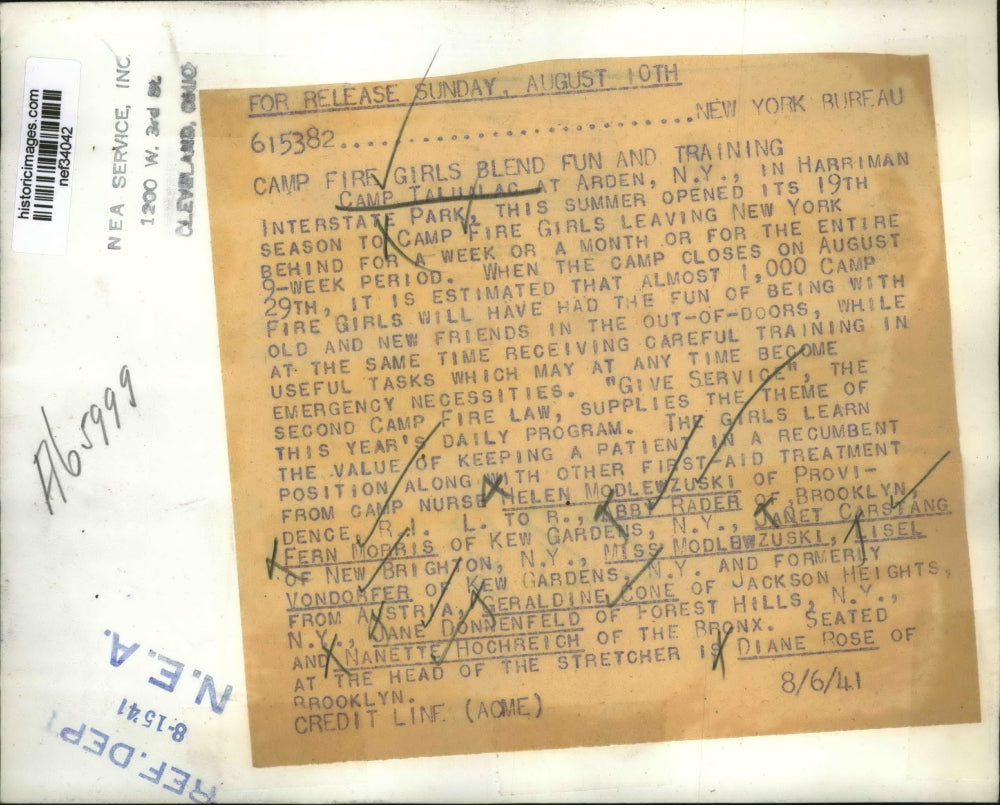 FOR RELEASE SUNDAY, AUGUST 10TH
615382..............................NEW YORK BUREAU
CAMP FIRE GIRLS BLEND FUN AND TRAINING
CAMP TALUALAC AT ARDEN, N.Y., IN HARRIMAN
INTERSTATE PARK, THIS SUMMER OPENED ITS 19TH
SEASON TO CAMP FIRE GIRLS LEAVING NEW YORK
BEHIND FOR A WEEK OR A MONTH OR FOR THE ENTIRE
9-WEEK PERIOD. WHEN THE CAMP CLOSES ON AUGUST
29TH, IT IS ESTIMATED THAT ALMOST 1,000 CAMP
FIRE GIRLS WILL HAVE HAD THE FUN OF BEING WITH
OLD AND NEW FRIENDS IN THE OUT-OF-DOORS, WHILE
AT THE SAME TIME RECEIVING CAREFUL TRAINING IN
USEFUL TASKS WHICH MAY AT ANY TIME BECOME
EMERGENCY NECESSITIES. "GIVE SERVICE", THE
SECOND CAMP FIRE LAW, SUPPLIES THE THEME OF
THIS YEAR'S DAILY PROGRAM. THE GIRLS LEARN
THE VALUE OF KEEPING A PATIENT IN A RECUMBENT
POSITION ALONG WITH OTHER FIRST-AID TREATMENT
FROM CAMP NURSE HELEN MODLEWZUSKI OF PROVI-
DENCE, R.I. L. TO R., ABBY RADER OF BROOKLYN,
FERN MORRIS OF KEW GARDENS, N.Y., JANET CARSTANG
OF NEW BRIGHTON, N.Y., MISS MODLEWZUSKI, LISEL
VONDORFER OF KEW GARDENS, N.Y. AND FORMERLY
FROM AUSTRIA, GERALDINE CONE OF JACKSON HEIGHTS,
N.Y., JANE DONNENFELD OF FOREST HILLS, N.Y.,
AND NANETTE HOCHREICH OF THE BRONX. SEATED
AT THE HEAD OF THE STRETCHER IS DIANE ROSE OF
BROOKLYN.
CREDIT LINE (ACME)
8/6/41
historicimages.com
nef34042
NEA SERVICE, INC.
1200 W. 3rd St.
CLEVELAND, OHIO
A65999
N.E.A.
8-15-41
REF. DEPT